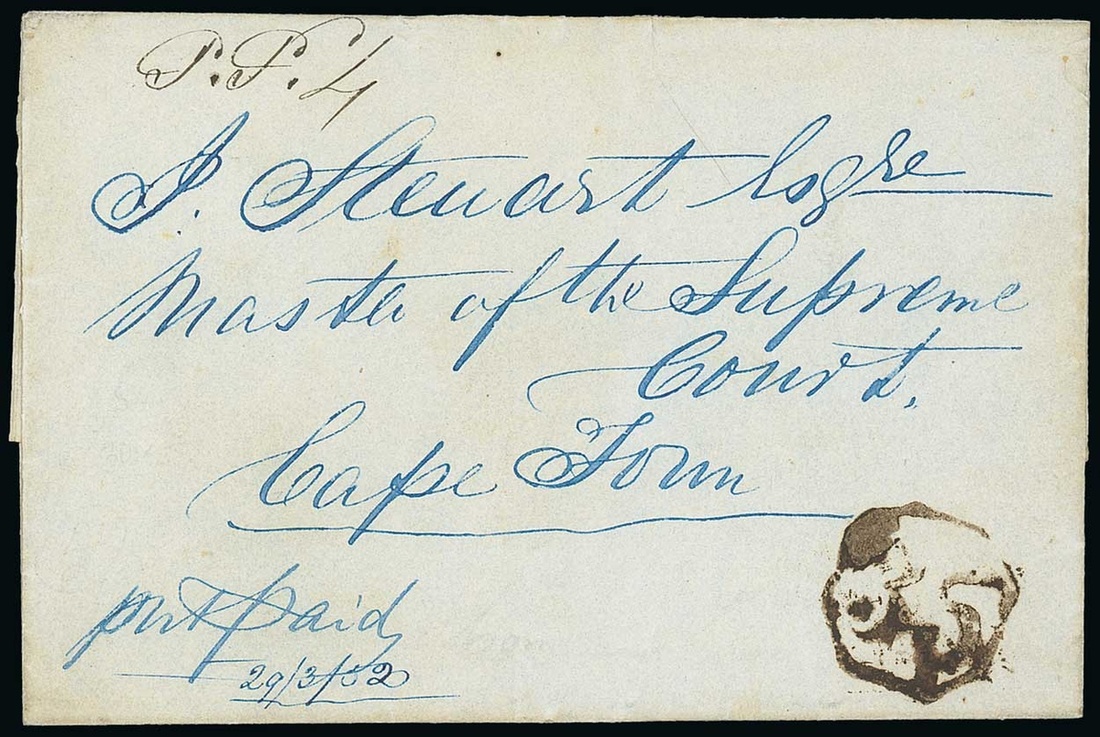 P.P. 4
J. Steuart Esqre
Master of the Supreme
Court.
Cape Town
post paid
29/3/52